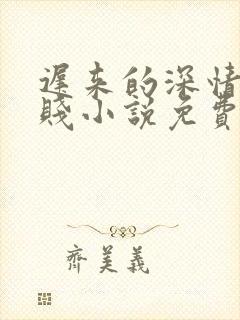 遲来的深情
賤小說免費
齊美義